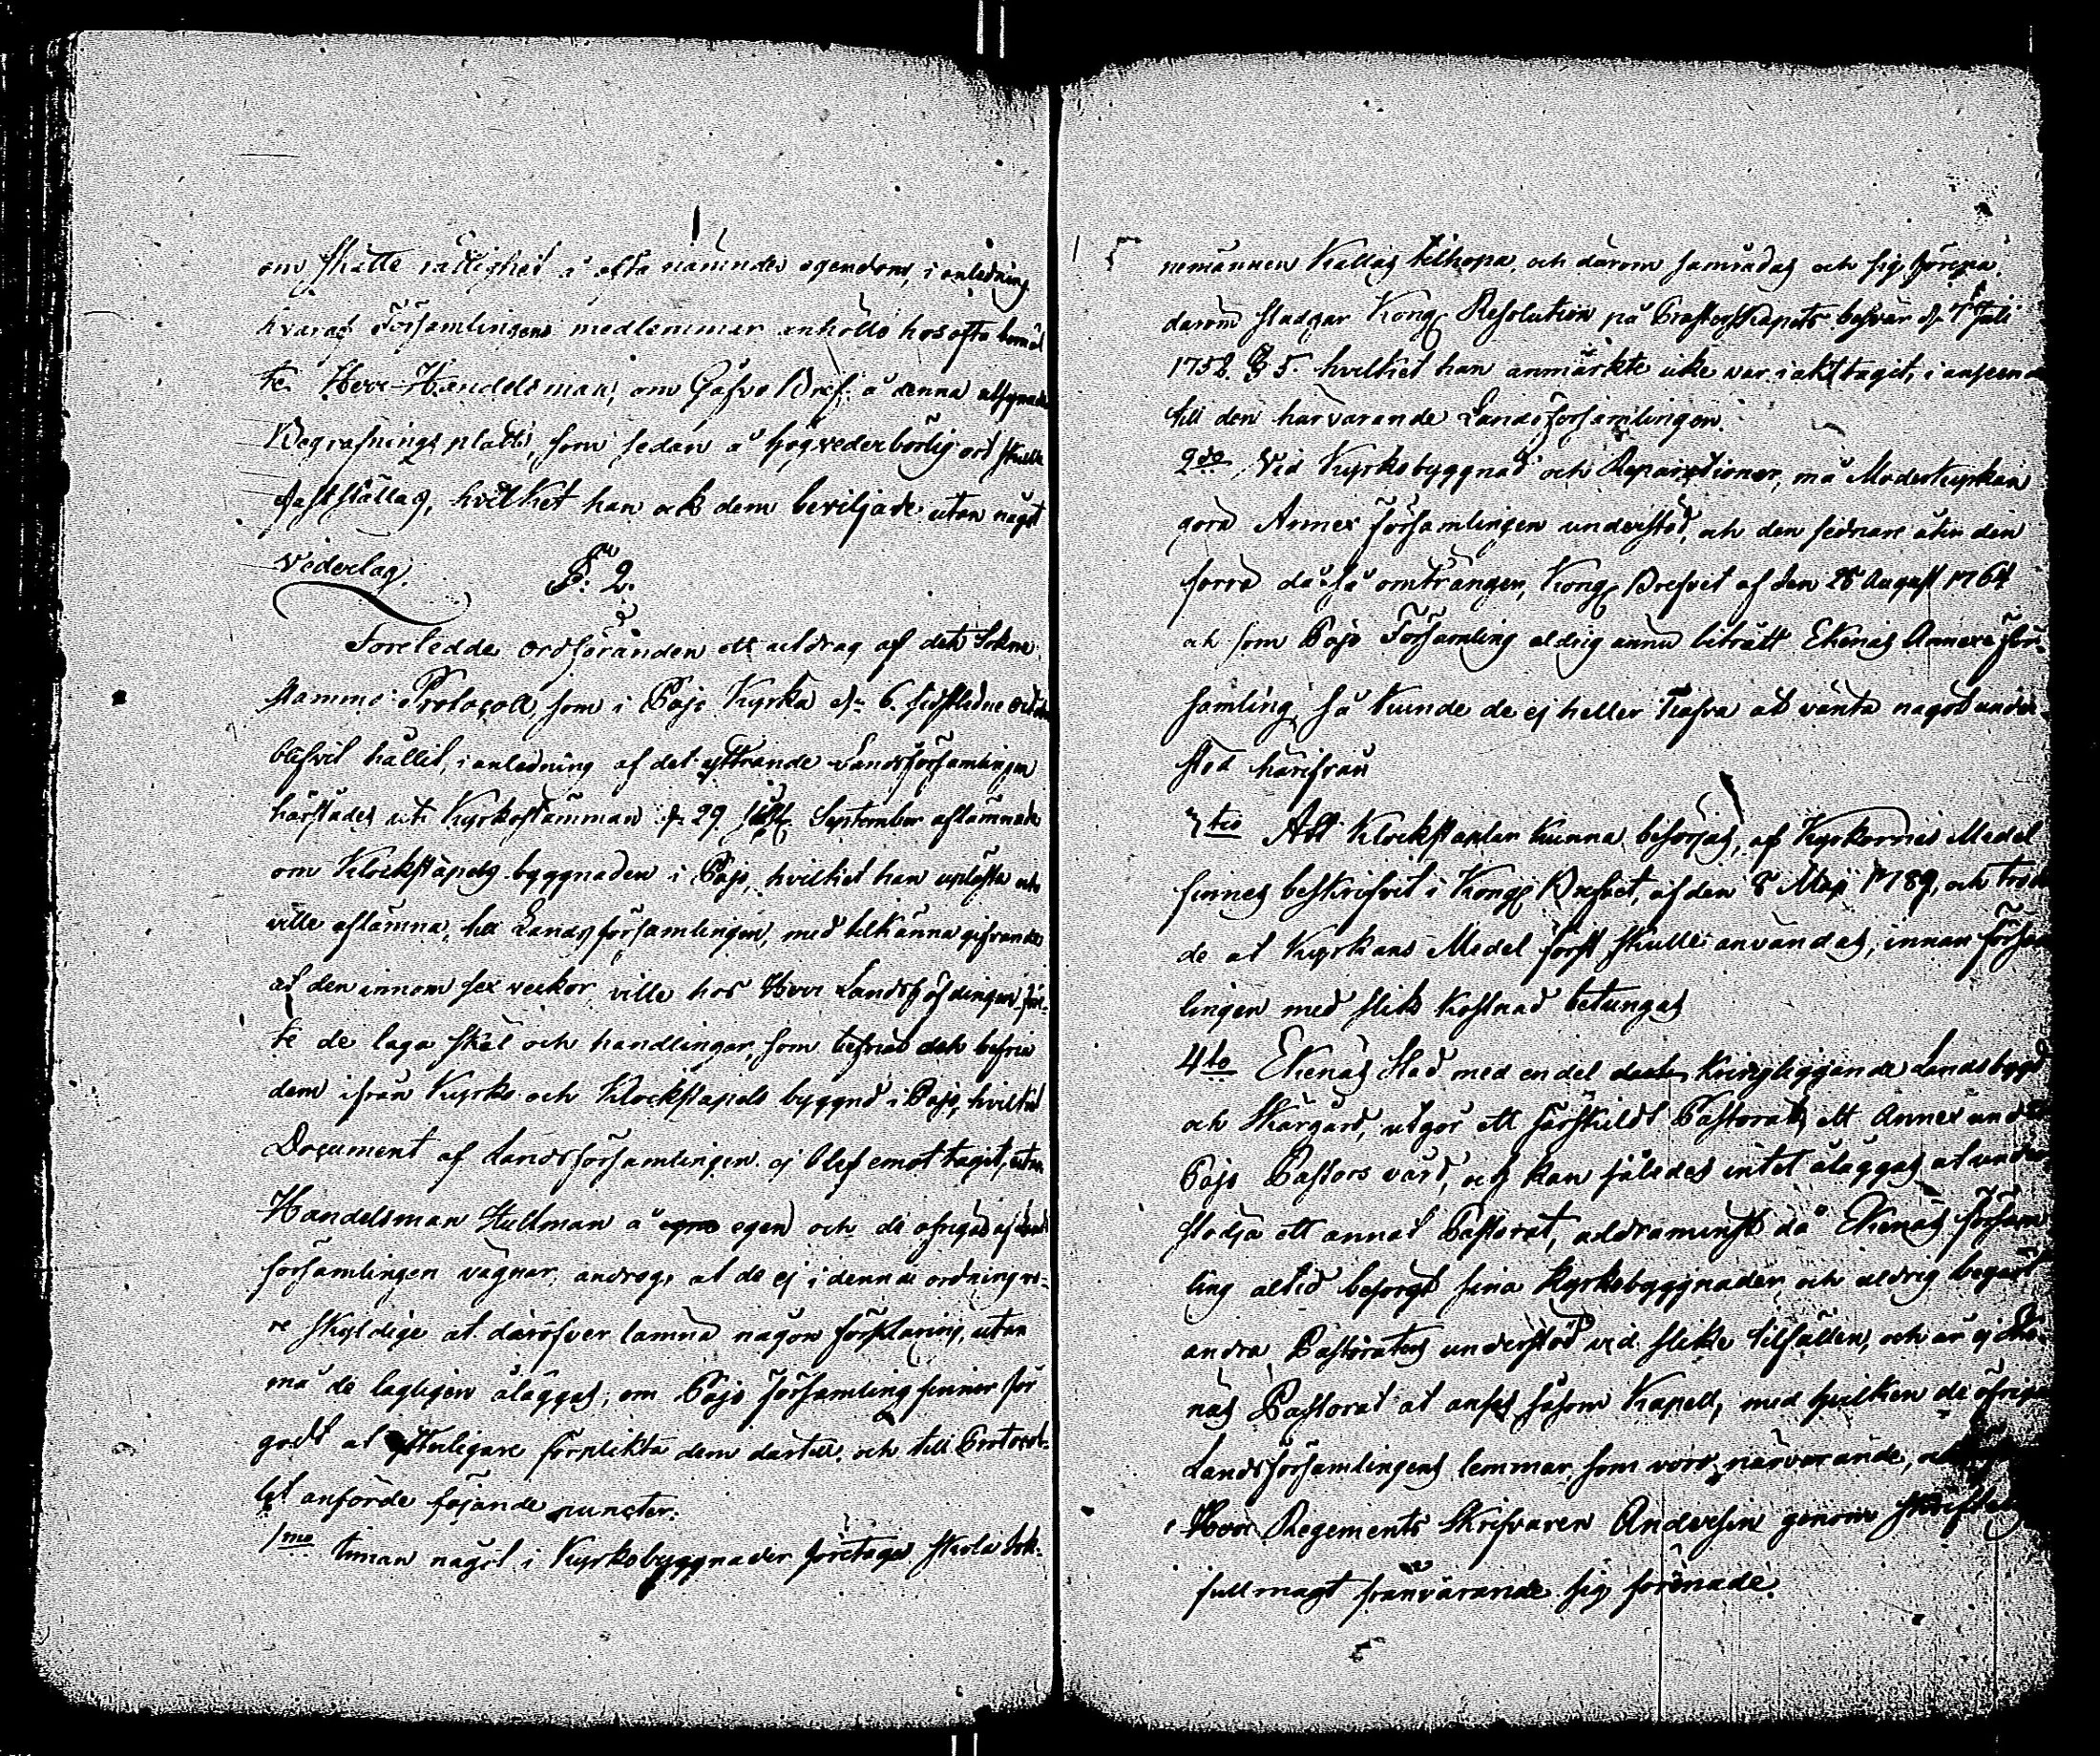 om Skatte rättighet i ofta nämnde egendom, i anledning
hvaraf Församlingens medlemmar anhöllo hos ofta bemäl
te Herr Handelsman, om Gåfvo Bref å denna afsynade
Begrafnings platts, som sedan å högvederbörlig ort skulle
fastställas, hvilket han ock dem beviljade utan något
vederlag.
§. 2.
Föreledde ordföranden ett utdrag af det Sokne
stämmo Protocoll, som i Pojo Kyrka d. 6. sidstledne
blifvit hållit, i anledning af det yttrande Landsförsamlingen
härstädes uti Kyrkostämman d. 29 September aflämnade
om Klockstapels byggnaden i Pojo, hvilket han upläste och
ville aflämna, till Landsförsamlingen, med tilkänna gifvande
at den innom sex veckor ville hos Herr Landshöfdingen för-
te de laga skäl och handlingar, som befriat och befria
dem ifrån Kyrko och Klockstapels byggnad i Pojo, hvilket
Document af Landsförsamlingen ej blef emot tagit, utan
Handelsman Hultman å egen och de öfriges af Lands
församlingen vägnar, androg, at de ej i denna ordning vo-
re skyldige at däröfver lämna någon förklaring, utan
må de lagligen åläggas, om Pojo församling finner för
godt at ytterligare förplikta dem dartill, och till Protocol-
let anförde följande puncter.
1mo innan något i Kyrkobyggnader företages skola Sok-
nemännen kallas tilhopa, och därom samrådas och sig förena,
därom stadgar Kongl Resolution på Prästerskapets besvär d. 7 Juli
1752. § 5. hvilket han anmärkte icke var i akt tagit, i anseende
till den härvarande Landsförsamlingen.
2do Vid Kyrkobyggnad och Reparationer, må Moderkyrkan
göra Annex församlingen understöd, och den sednare åter den
förra då så omtränges, Kongl Brefvet af den 28 August 1764
och som Pojo Församling aldrig ännu biträtt Ekenäs Annex för-
samling, så kunde de ej heller Hafva at vänta något under
stöd härifrån
3tio Att Klockstaplar kunna besörjas, af Kyrkornes Medel
finnes beskrifvit i Kongl Brefvet, af den 8 Maji 1789, och trod
de at Kyrkans Medel först skulle användas, innan Försam
lingen med slik kostnad betungas
4to Ekenäs Stad med en del kringliggande Landsbygd
och Skärgård, utgör ett särskildt Pastorat, ett Annex under
Pojo Pastors vård, och kan således intet åläggas at under
stödja ett annat Pastorat, aldraminst då Ekenäs Församl
ling altid besörgt sina Kyrkobyggnader och aldrig begärt
andra Pastoraters understöd vid slike tilfällen, och är ej Eke-
näs Pastorat at anses såsom Kapell, med hvilken de öfriga
Landsförsamlingens lemmar som voro närvarande,
Herr Regements Skrifvaren Andersin genom skrifteli
fullmagt frånvarande sig förenade.